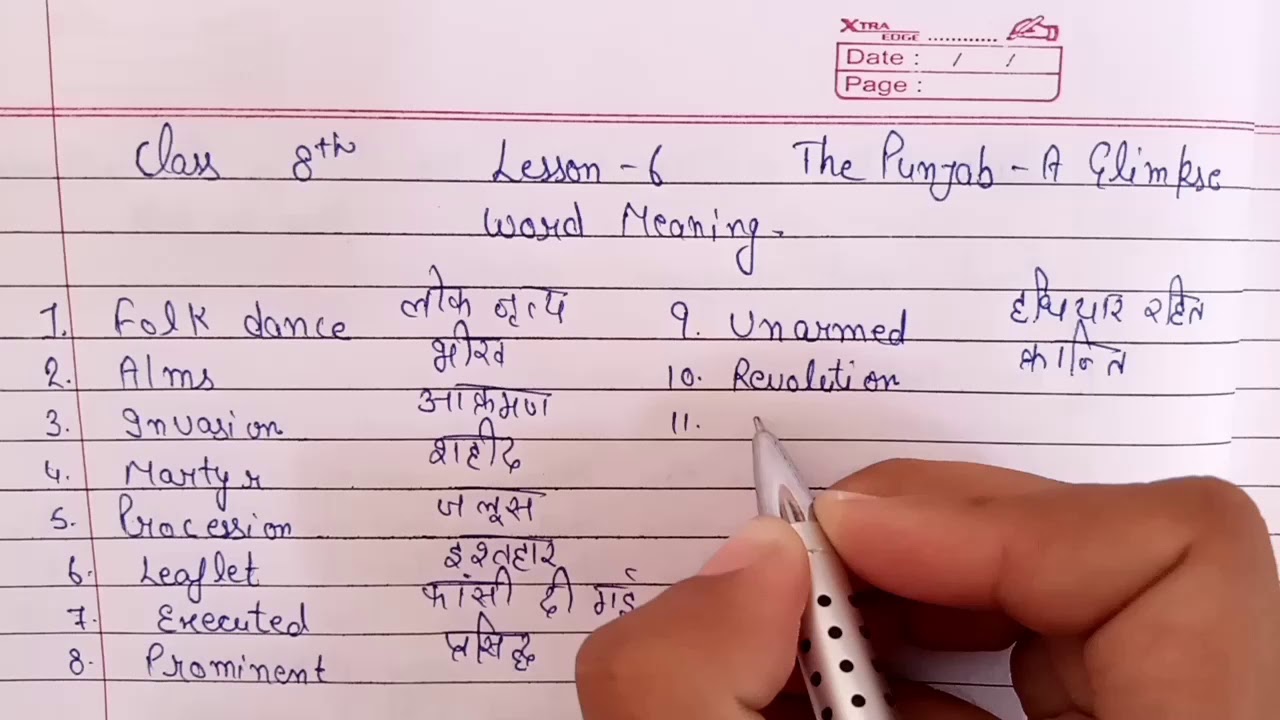 XTRA EDGE ............
Date : / /
Page :
Class 8th Lesson - 6 The Punjab - A Glimpse
Word Meaning.
1. Folk dance लोक नृत्य
2. Alms भीख
3. Invasion आक्रमण
4. Martyr शहीद
5. Procession जलूस
6. Leaflet इश्तहार
7. Executed फांसी दी गई
8. Prominent प्रसिद्ध
9. Unarmed हथियार रहित
10. Revolution क्रान्ति
11.